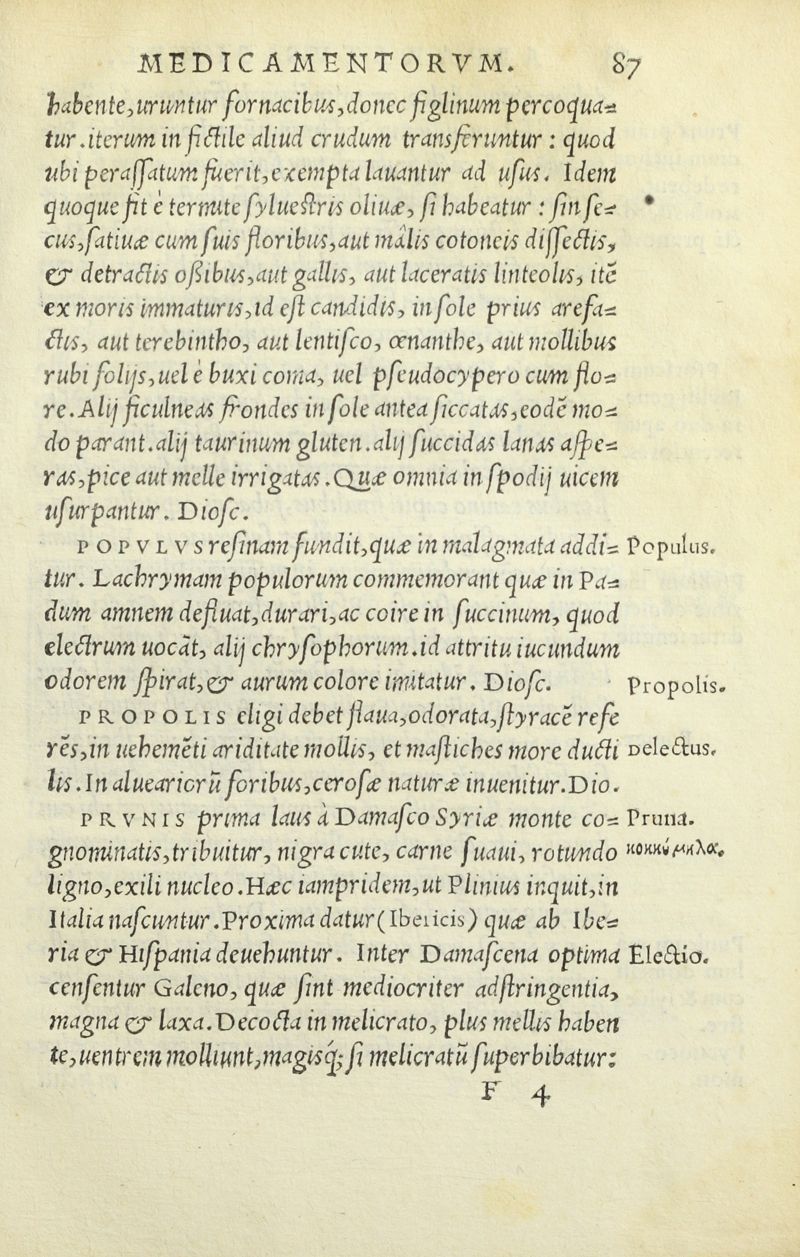 MEDICAMENTORVM. 87
habente,uruntur fornacibus,donec figlinum percoqua=
tur.iterum in fictile aliud crudum transferuntur : quod
ubi perassatum fuerit,exempta lauantur ad usus. Idem
quoque fit è termite syluestris oliuæ, si habeatur : sin se= *
cus,satiuæ cum suis floribus,aut malis cotoneis dissectis,
& detractis ossibus,aut gallis, aut laceratis linteolis, itē
ex moris immaturis,id est candidis, in sole prius arefa=
ctis, aut terebintho, aut lentisco, œnanthe, aut mollibus
rubi folijs,uel è buxi coma, uel pseudocypero cum flo=
re.Alij ficulneas frondes in sole antea siccatas,eodē mo=
do parant.alij taurinum gluten.alij succidas lanas aspe=
ras,pice aut melle irrigatas.Quæ omnia in spodij uicem
usurpantur. Diosc.
POPVLVS resinam fundit,quæ in malagmata addi= Populus.
tur. Lachrymam populorum commemorant quæ in Pa=
dum amnem defluat,durari,ac coire in succinum, quod
electrum uocāt, alij chrysophorum.id attritu iucundum
odorem spirat,& aurum colore imitatur. Diosc. Propolis.
PROPOLIS eligi debet flaua,odorata,styracē refe
rēs,in uehemēti ariditate mollis, et mastiches more ducti Delectus.
lis.In aluearicrū foribus,cerosæ naturæ inuenitur.Dio.
PRVNIS prima laus à Damasco Syriæ monte co= Pruna.
gnominatis,tribuitur, nigra cute, carne suaui, rotundo κοκκύμηλα.
ligno,exili nucleo.Hæc iampridem,ut Plinius inquit,in
Italia nascuntur.Proxima datur(Ibericis) quæ ab Ibe=
ria & Hispania deuehuntur. Inter Damascena optima Electio.
censentur Galeno, quæ sint mediocriter adstringentia,
magna & laxa.Decocta in melicrato, plus mellis haben
te,uentrem molliunt,magisq; si melicratū superbibatur:
F 4